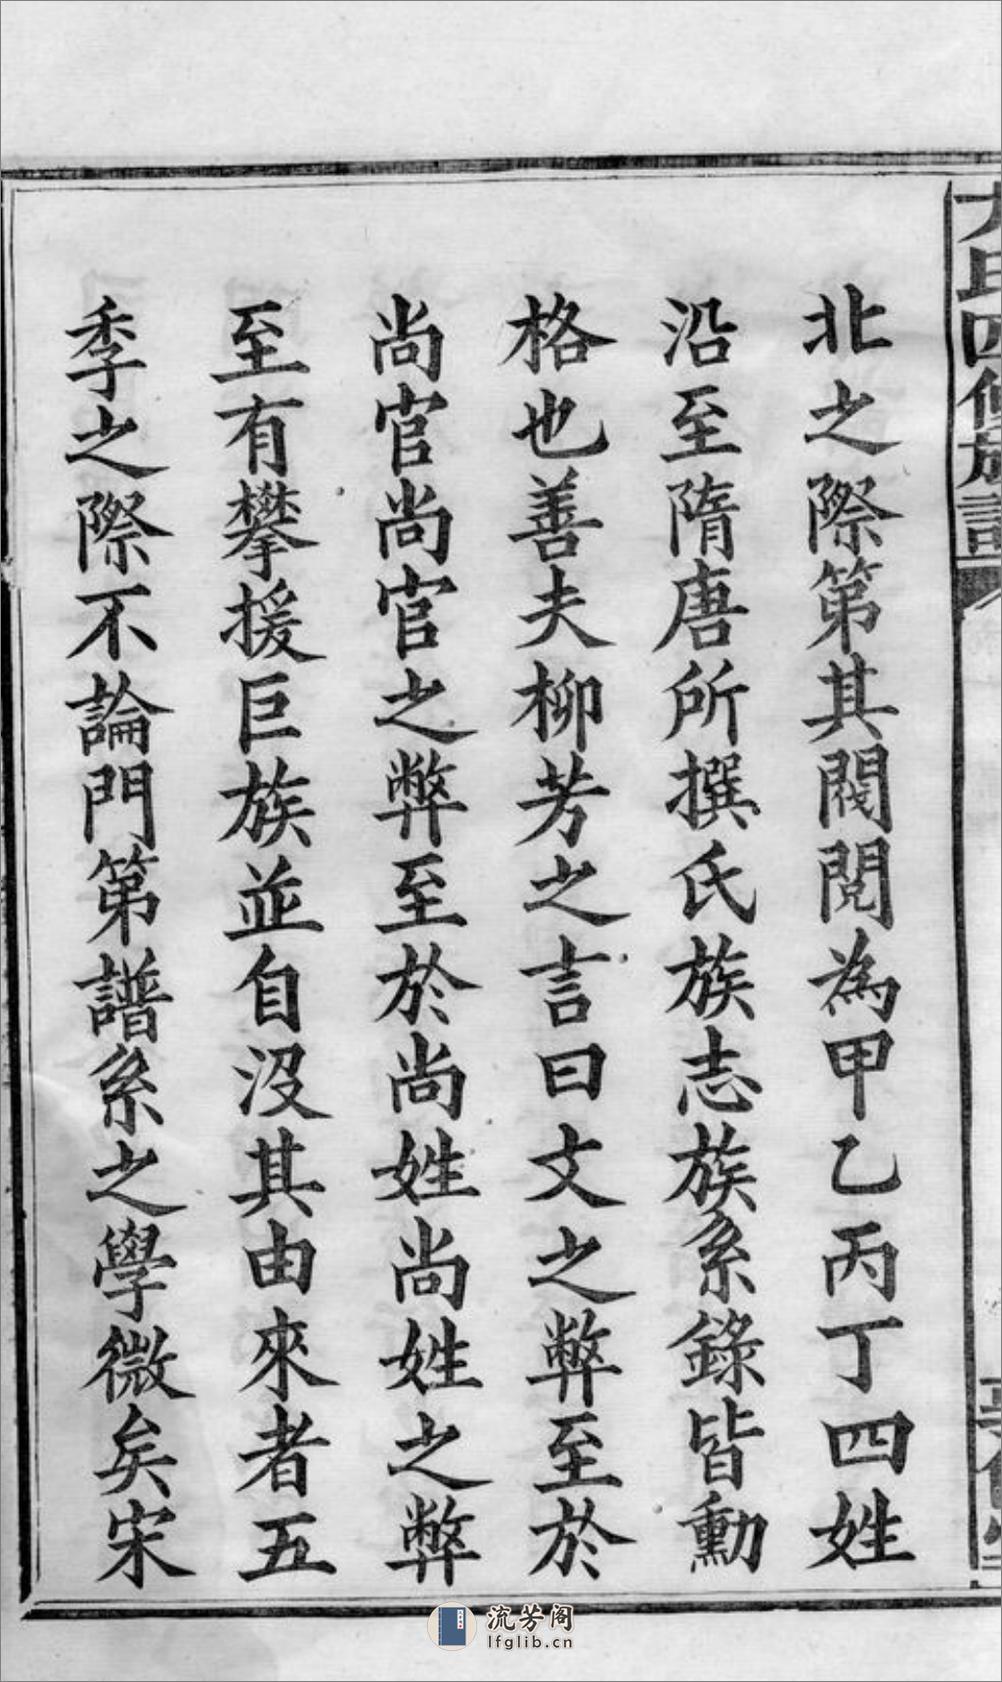 北之際第其閥閱為甲乙丙丁四姓
沿至隋唐所撰氏族志族系錄皆勳
格也善夫柳芳之言曰文之弊至於
尚官尚官之弊至於尚姓尚姓之弊
至有攀援巨族並自沒其由來者五
季之際不論門第譜系之學微矣宋
氏四修族譜
流芳阁
lfglib.cn